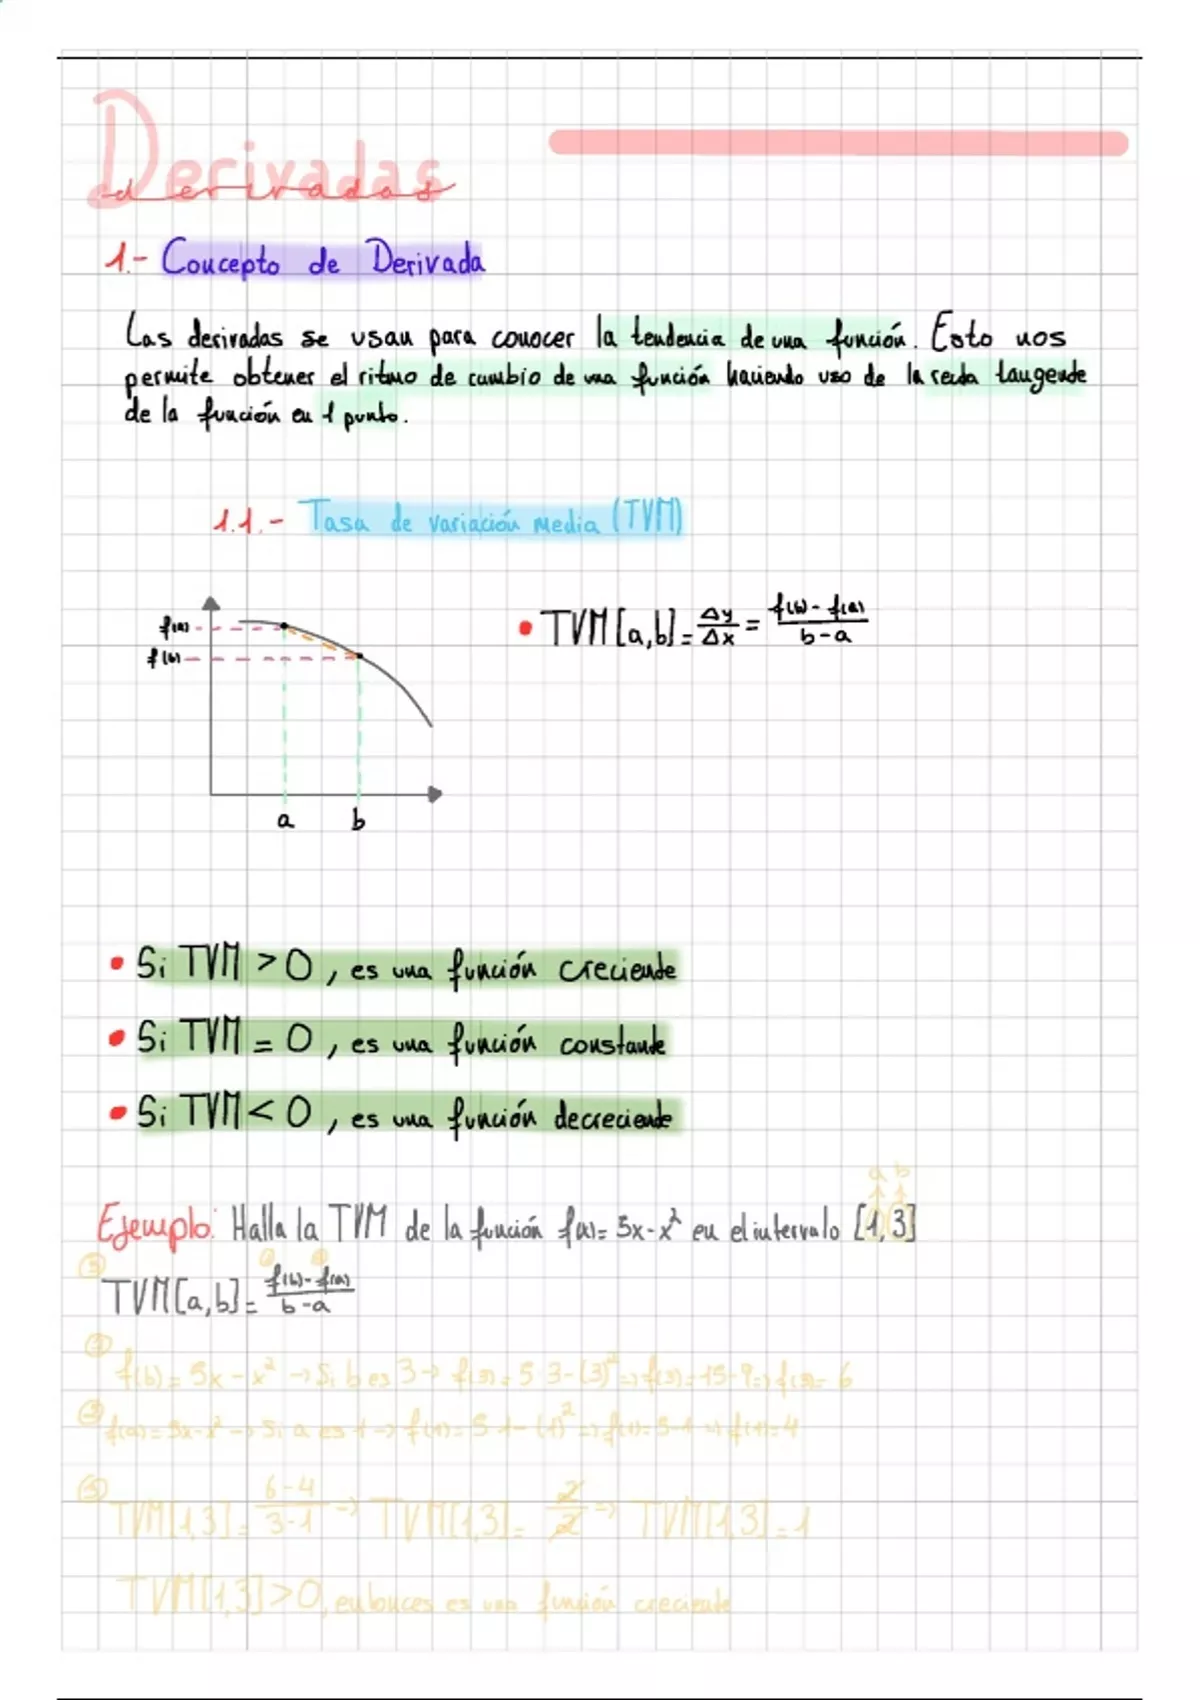 Derivadas
derivadas
1.- Concepto de Derivada
Las derivadas se usan para conocer la tendencia de una función. Esto nos
permite obtener el ritmo de cambio de una función haciendo uso de la recta tangente
de la función en 1 punto.
1.1.- Tasa de variación media (TVM)
f(a)
f(b)
a b
• TVM [a,b] = Δy/Δx = f(b) - f(a)/b-a
• Si TVM > 0, es una función creciente
• Si TVM = 0, es una función constante
• Si TVM < 0, es una función decreciente
a b
Ejemplo: Halla la TVM de la función f(x) = 5x - x² en el intervalo [1,3]
TVM[a,b] = f(b) - f(a)/b-a
f(b) = 5x - x² → Si b es 3 → f(3) = 5·3 - (3)² => f(3) = 15 - 9 => f(3) = 6
f(a) = 5x - x² → Si a es 1 → f(1) = 5·1 - (1)² => f(1) = 5-1 => f(1) = 4
TVM[1,3] = 6-4/3-1 => TVM[1,3] = 2/2 => TVM[1,3] = 1
TVM[1,3] > 0, entonces es una función creciente